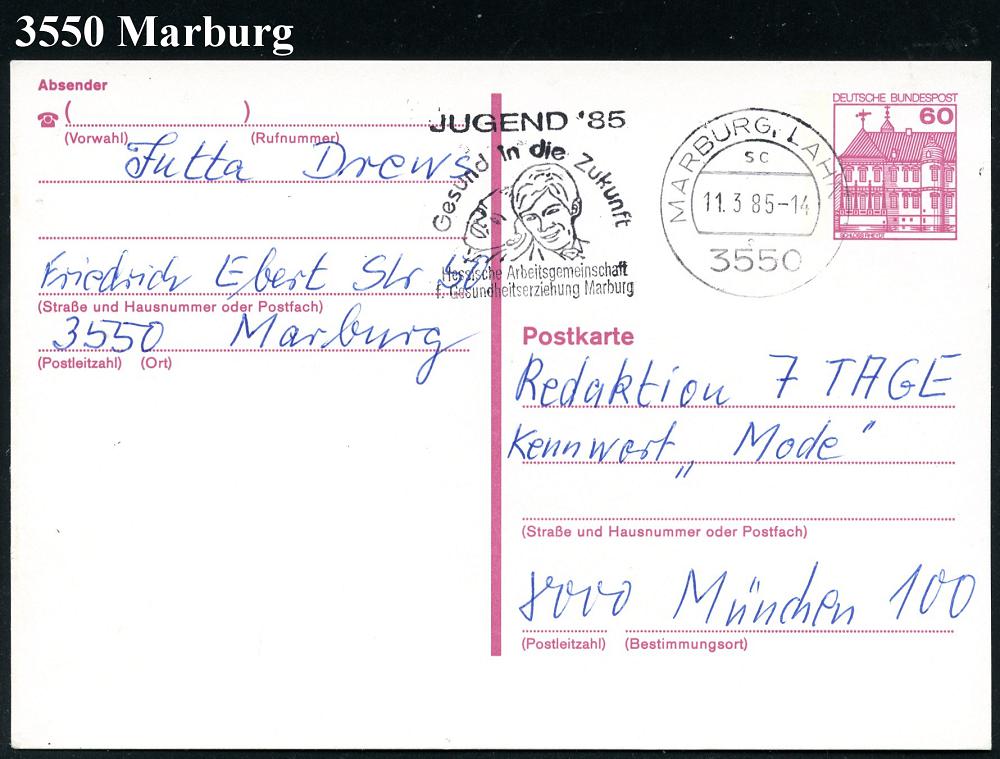 3550 Marburg
Absender
☎ ( )
(Vorwahl) (Rufnummer)
Jutta Drews
Friedrich Ebert Str
(Straße und Hausnummer oder Postfach)
3550 Marburg
(Postleitzahl) (Ort)
JUGEND '85
Gesund in die Zukunft
Hessische Arbeitsgemeinschaft
f. Gesundheitserziehung Marburg
MARBURG, LAHN
sc
11.3.85-14
3550
DEUTSCHE BUNDESPOST
60
SCHLOSS RHEYDT
Postkarte
Redaktion 7 TAGE
Kennwort „Mode“
(Straße und Hausnummer oder Postfach)
8000 München 100
(Postleitzahl) (Bestimmungsort)